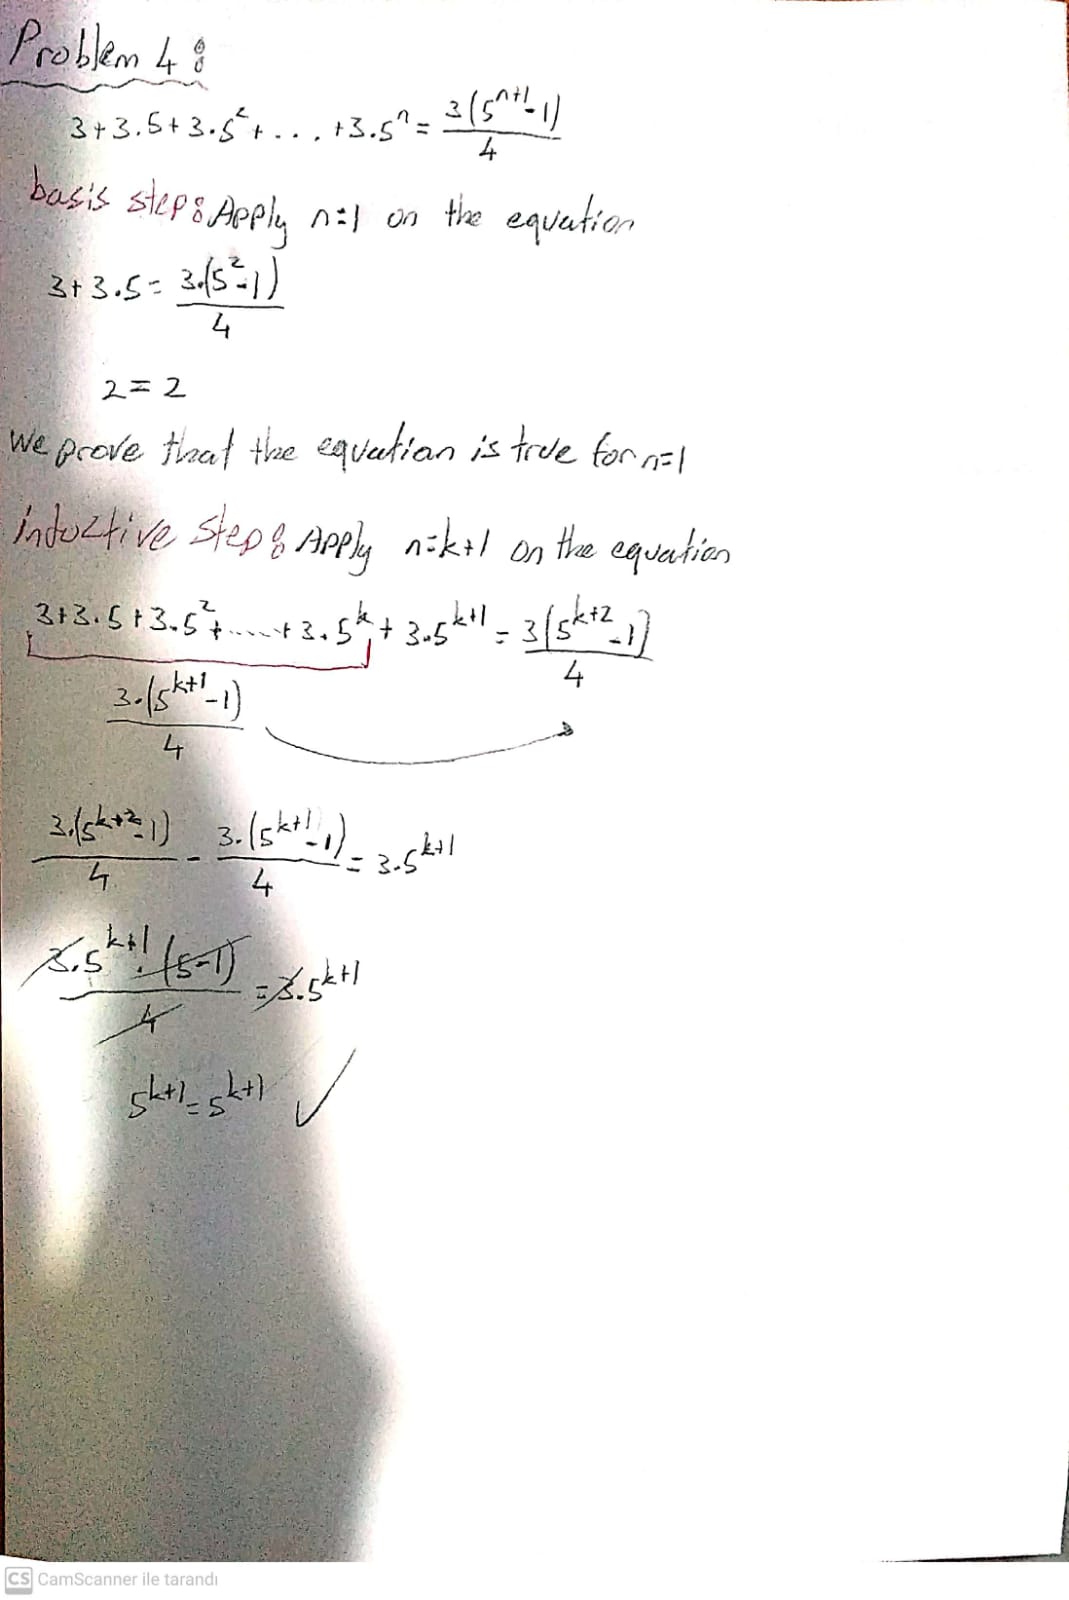 Problem 4:
3+3.5+3.5²+...+3.5ⁿ = 3(5ⁿ⁺¹-1)/4
basis step: Apply n=1 on the equation
3+3.5 = 3.(5²-1)/4
2=2
we prove that the equation is true for n=1
inductive step: Apply n=k+1 on the equation
3+3.5+3.5²+.....+3.5ᵏ+3.5ᵏ⁺¹ = 3(5ᵏ⁺²-1)/4
3.(5ᵏ⁺¹-1)/4
3.(5ᵏ⁺²-1)/4 - 3.(5ᵏ⁺¹-1)/4 = 3.5ᵏ⁺¹
3.5ᵏ⁺¹.(5-1)/4 = 3.5ᵏ⁺¹
5ᵏ⁺¹=5ᵏ⁺¹ ✓
CS CamScanner ile tarandı